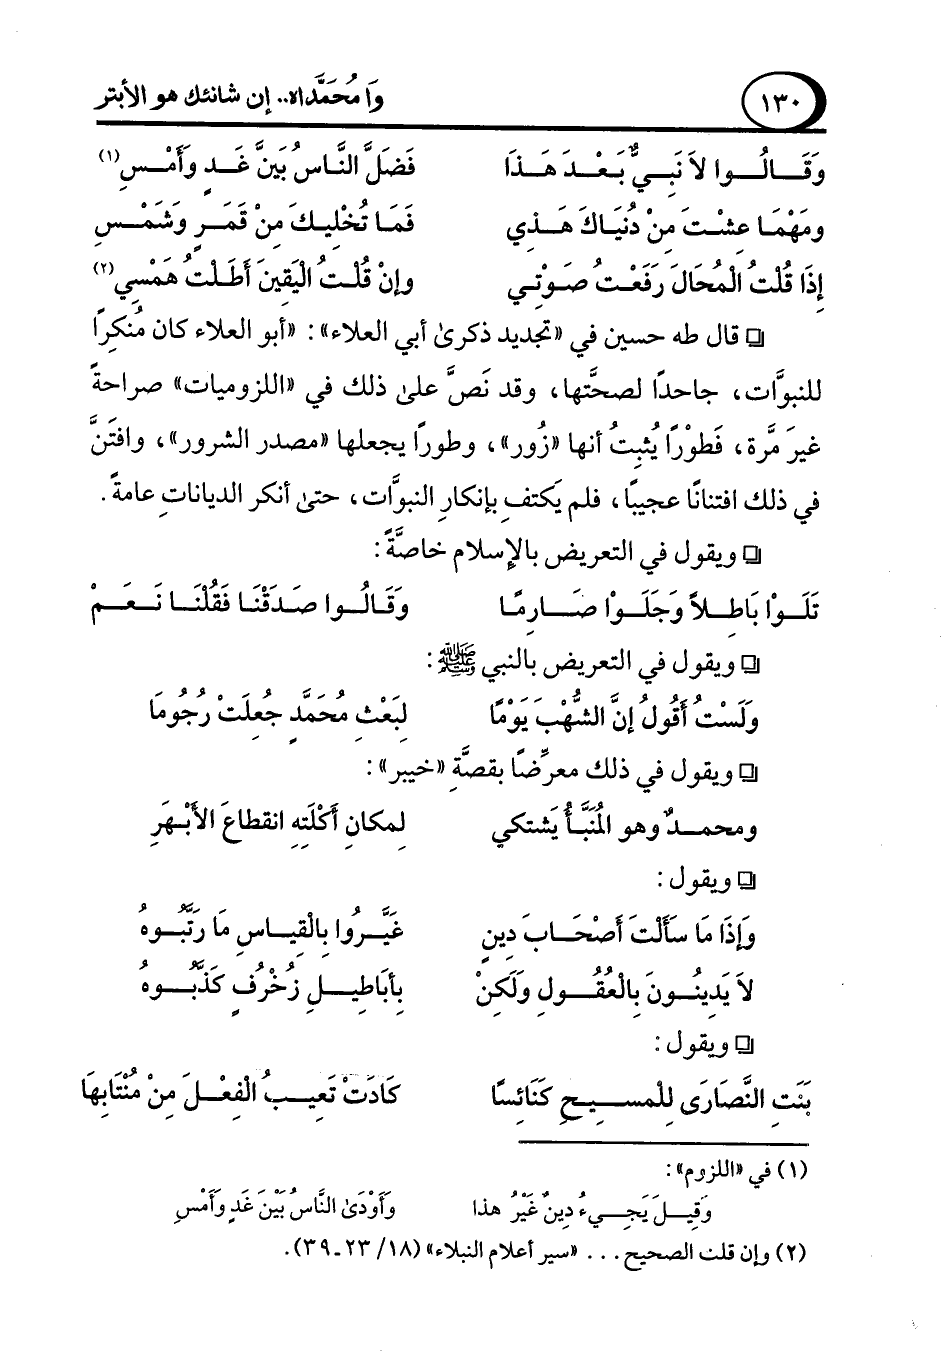 ١٣٠ وَا مُحَمَّداه.. إن شانئك هو الأبتر
وَقَـالُـوا لاَ نَبِـيٌّ بَـعْـدَ هَـذَا فَضَلَّ النَّاسُ بَيْنَ غَـدِ وَأَمْـسِ(١)
وَمَهْمَا عِشْـتَ مِنْ دُنْيَاكَ هَـذِي فَمَـا تُخْلِيـكَ مِنْ قَمَـرٍ وَشَمْـسِ
إِذَا قُلْتُ الْمُحَالَ رَفَعْـتُ صَـوْتِـي وإنْ قُلْـتُ الْيَقِينَ أَطَلْـتُ هَمْـسِي(٢)
❏ قال طه حسين في «تجديد ذكرىٰ أبي العلاء»: «أبو العلاء كان مُنكِرًا
للنبوَّات، جاحدًا لصحَّتها، وقد نَصَّ علىٰ ذلك في «اللزوميات» صراحةً
غيرَ مَّرة، فَطوْرًا يُثبِتُ أنها «زُور»، وطورًا يجعلها «مصدر الشرور»، وافتنَّ
في ذلك افتنانًا عجيبًا، فلم يَكتفِ بإنكارِ النبوَّات، حتىٰ أنكر الدياناتِ عامةً.
❏ ويقول في التعريض بالإسلام خاصَّةً:
تَلَـوْا بَاطِـلاً وَجَلَـوْا صَـارِمًـا وَقَـالُـوا صَـدَقْنَـا فَقُلْنَـا نَـعَـمْ
❏ ويقول في التعريض بالنبي ﷺ:
وَلَسْتُ أَقُولُ إِنَّ الشُّهْبَ يَوْمًا لِبَعْثِ مُحَمَّدٍ جُعِلَتْ رُجُومَا
❏ ويقول في ذلك معرِّضًا بقصَّةِ «خيبر»:
ومحمـدٌ وهو الْمُنَبَّأُ يَشتكي لِمكانِ أَكْلَتِهِ انقطاعَ الأَبْهَرِ
❏ ويقول:
وَإِذَا مَا سَأَلْتَ أَصْحَـابَ دِينٍ غَيَّـرُوا بِالْقِيـاسِ مَا رَتَّبُـوهُ
لاَ يَدِينُـونَ بِالْعُقُـولِ وَلَكِنْ بِأَبَاطِيـلِ زُخْرُفٍ كَذَّبُـوهُ
❏ ويقول:
بَنَتِ النَّصَارَى لِلْمسِيـحِ كَنَائِسًا كَادَتْ تَعِيـبُ الْفِعْـلَ مِنْ مُنْتَابِهَا
(١) في «اللزوم»:
وَقِيـلَ يَجِـيءُ دِينٌ غَيْرُ هذا وَأَوْدَىٰ النَّاسُ بَيْنَ غَدٍ وَأَمْسِ
(٢) وإن قلت الصحيح... «سير أعلام النبلاء» (١٨/ ٢٣ـ٣٩).